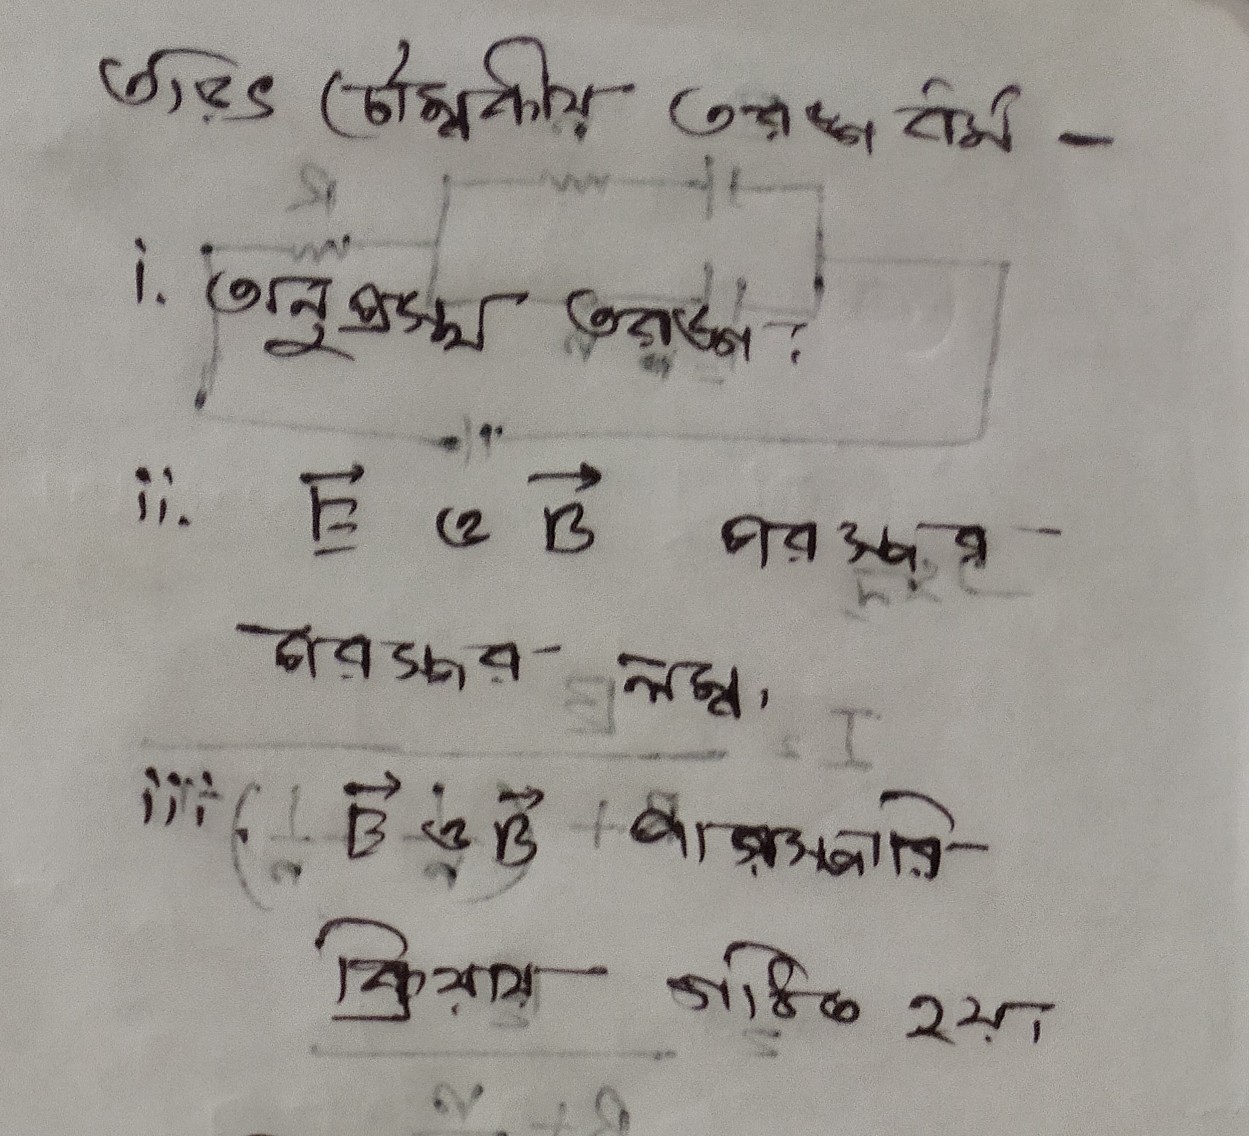 তড়িৎ চৌম্বকীয় তরঙ্গ ধর্ম -
i. অনুপ্রস্থ তরঙ্গ।
ii. E ও B পরস্পর
পরস্পর লম্ব।
iii. B ও B পারস্পারি
ক্রিয়ায় গঠিত হয়।